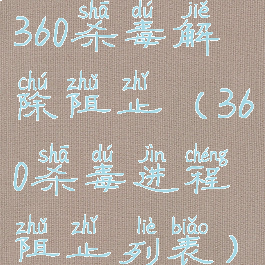 shā dú jiě
360杀毒解
chú zhǔ zhǐ
除阻止（36
shā dú jìn chéng
0杀毒进程
zhǔ zhǐ liè biǎo
阻止列表）